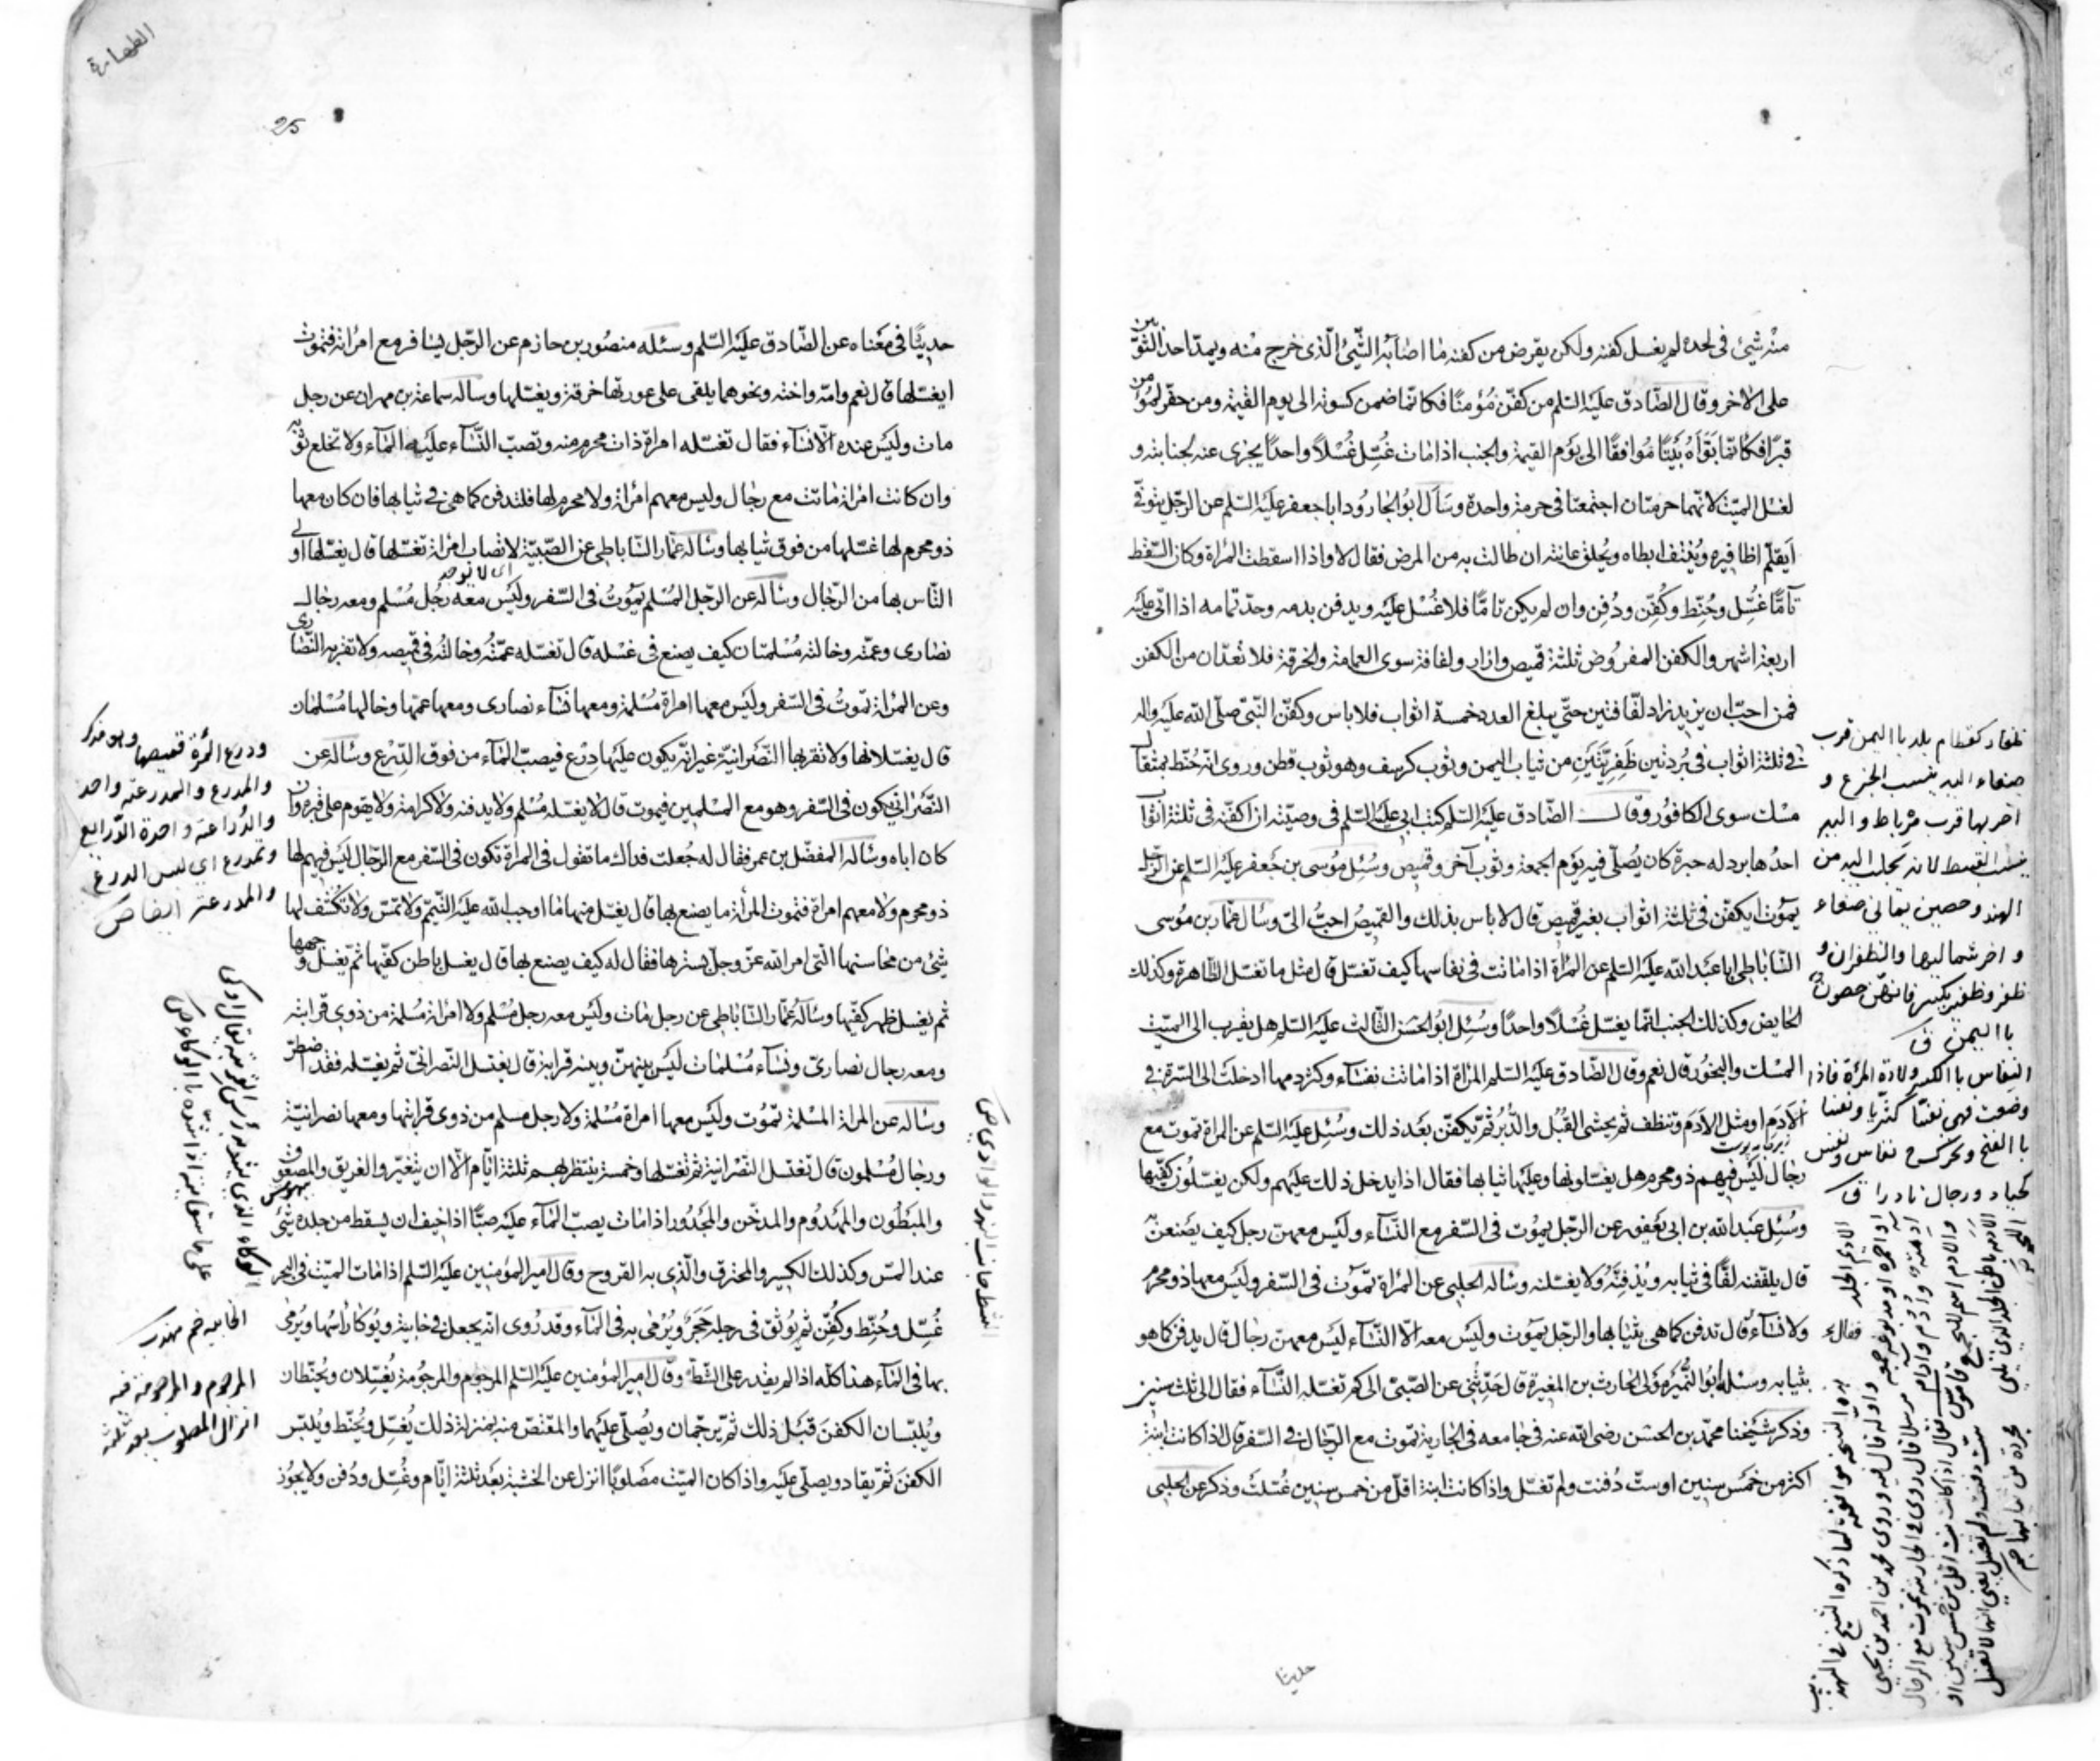 منه شيئ في لحده لم يغسل كفنه ولكن يقرض من كفنه ما اصابه الشيئ الّذي خرج منه ويمدّ احد الثوبين
على الاخر وقال الصّادق عليه السّلم من كفّن مؤمنًا فكانّما ضمن كسوته الى يوم القيمة ومن حفر لمؤمن
قبرًا فكانّما بوّاه بيتًا موافقًا الى يوم القيمة والجنب اذا مات غسّل غسلًا واحدًا يجزى عنه لجنابته و
لغسل الميّت لانّهما حرمتان اجتمعتا في حرمة واحدة وسأل ابو الجارود ابا جعفر عليه السّلم عن الرّجل يتوفّى
أيقلّم اظافيره وينتف ابطاه ويحلق عانته ان طالت به من المرض فقال لا واذا اسقطت المراة وكان السّقط
تامًّا غسّل وحنّط وكفّن ودفن وان لم يكن تامًّا فلا غسل عليه ويدفن بدمه وحدّ تمامه اذا اتى عليه
اربعة اشهر والكفن المفروض ثلثة قميص وازار ولفافة سوى العمامة والخرقة فلا تعدّان من الكفن
فمن احبّ ان يزيد زاد لفّافتين حتّى يبلغ العدد خمسة اثواب فلا باس وكفّن النّبيّ صلّى الله عليه واله
في ثلثة اثواب في بردتين ظفريّتين من ثياب اليمن وثوب كرسف وهو ثوب قطن وروى انّه حنّط بمثقال
مسك سوى الكافور وقال الصّادق عليه السّلم كتب ابي عليه السّلم في وصيّته ان كفّنه في ثلثة اثواب
احدها برد له حبرة كان يصلّى فيه يوم الجمعة وثوب آخر وقميص وسئل موسى بن جعفر عليه السّلم عن الرّجل
يموت ايكفّن في ثلثة اثواب بغير قميص قال لا باس بذلك والقميص احبّ الىّ وسأل عمّار بن موسى
السّاباطي ابا عبد الله عليه السّلم عن المراة اذا ماتت في نفاسها كيف تغسّل قال مثل ما تغسّل الطّاهرة وكذلك
الحايض وكذلك الجنب انّما يغسّل غسلًا واحدًا وسئل ابو الحسن الثّالث عليه السّلم هل يقرب الى الميّت
المسك والبخور قال نعم وقال الصّادق عليه السّلم المراة اذا ماتت نفساء وكثر دمها ادخلت الى السّرة في
الادم او مثل الادم وتنظف ثم يحشى القبل والدّبر ثمّ تكفّن بعد ذلك وسئل عليه السّلم عن المراة تموت مع
رجال ليس فيهم ذو محرم هل يغسّلونها وعليها ثيابها فقال اذا يدخل ذلك عليهم ولكن يغسّلون كفّيها
وسئل عبد الله بن ابي يعفور عن الرّجل يموت في السّفر مع النّساء وليس معهن رجل كيف يصنعن به
قال يلففنه لفًّا في ثيابه ويدفنّه ولا يغسلنه وساله الحلبي عن المراة تموت في السّفر وليس معها ذو محرم
ولا نساء قال تدفن كما هي بثيابها والرّجل يموت وليس معه الّا النّساء ليس معهنّ رجال قال يدفن كما هو
بثيابه وسئله ابو النّمير مولى الحارث بن المغيرة قال حدّثني عن الصّبي الى كم تغسّله النّساء فقال الى ثلث سنين
وذكر شيخنا محمّد بن الحسن رضى الله عنه في جامعه في الجارية تموت مع الرّجال في السّفر قال اذا كانت ابنة
اكثر من خمس سنين او ستّ دفنت ولم تغسّل واذا كانت ابنة اقلّ من خمس سنين غسّلت وذكر عن الحلبى
حديثا
ظفار كقطام بلد باليمن قرب
صنعاء اليه ينسب الجزع و
آخر بها قرب مرباط واليه
ينسب القسط لانه يجلب اليه من
الهند وحصن يماني صنعاء
وآخر شماليها
باليمن ق
النفاس بالكسر ولادة المرأة فاذا
وضعت فهي نفساء
الطهارة
25
حديثًا في معناه عن الصّادق عليه السّلم وسئله منصور بن حازم عن الرّجل يسافر مع امراته فتموت
ايغسّلها قال نعم وامّه واخته ونحوهما يلقى على عورتها خرقة ويغسّلها وساله سماعة بن مهران عن رجل
مات وليس عنده الّا نساء فقال تغسّله امراة ذات محرم منه وتصبّ النّساء عليه الماء ولا تخلع ثوبه
وان كانت امراة ماتت مع رجال وليس معهم امراة ولا محرم لها فلتدفن كما هي في ثيابها فان كان معها
ذو محرم لها غسّلها من فوق ثيابها وساله عمّار السّاباطي عن الصّبيّة لا تصاب امراة تغسّلها قال يغسّلها اولى
اى لا توجد
النّاس بها من الرّجال وساله عن الرّجل المسلم يموت في السّفر وليس معه رجل مسلم ومعه رجال
نصارى وعمّته وخالته مسلمتان كيف يصنع في غسله قال تغسّله عمّته وخالته في قميصه ولا تقربه النّصارى
وعن المراة تموت في السّفر وليس معها امراة مسلمة ومعها نساء نصارى ومعها عمّها وخالها مسلمان
قال يغسّلانها ولا تقربها النّصرانيّة غير انّه يكون عليها درع فيصبّ الماء من فوق الدّرع وساله عن
النّصرانيّ يكون في السّفر وهو مع المسلمين فيموت قال لا يغسّله مسلم ولا يدفنه ولا كرامة ولا يقوم على قبره وان
كان اباه وساله المفضّل بن عمر فقال له جعلت فداك ما تقول في المراة تكون في السّفر مع الرّجال ليس فيهم لها
ذو محرم ولا معهم امراة فتموت المراة ما يصنع بها قال يغسّل منها ما اوجب الله عليه التّيمّم ولا تمسّ ولا تكشف لها
شيئ من محاسنها الّتي امر الله عزّ وجلّ بسترها فقال له كيف يصنع بها قال يغسل باطن كفّيها ثمّ يغسل وجهها
ثم يغسل ظهر كفّيها وساله عمّار السّاباطي عن رجل مات وليس معه رجل مسلم ولا امراة مسلمة من ذوي قرابته
ومعه رجال نصارى ونساء مسلمات ليس بينهنّ وبينه قرابة قال يغتسل النّصرانيّ ثم يغسّله فقد اضطرّ
وساله عن المراة المسلمة تموت وليس معها امراة مسلمة ولا رجل مسلم من ذوي قرابتها ومعها نصرانيّة
ورجال مسلمون قال تغتسل النّصرانيّة ثم تغسّلها وخمسة ينتظر بهم ثلثة ايّام الّا ان يتغيّر والغريق والمصعوق
والمبطون والمهدوم والمدخّن والمجدور اذا مات يصبّ الماء عليه صبًّا اذا خيف ان يسقط من جلده شيئ
عند المسّ وكذلك الكسير والمحترق والّذي به القروح وقال امير المؤمنين عليه السّلم اذا مات الميّت في البحر
غسّل وحنّط وكفّن ثم يوثق في رجله حجر ويرمى به في الماء وقد روى انّه يجعل في خابية ويوكا راسها ويرمى
بها في الماء هذا كلّه اذا لم يقدر على الشّطّ وقال امير المؤمنين عليه السّلم المرجوم والمرجومة يغسّلان ويحنّطان
ويلبسان الكفن قبل ذلك ثم يرجمان ويصلّى عليهما والمقتصّ منه بمنزلة ذلك يغسّل ويحنّط ويلبس
الكفن ثمّ يقاد ويصلّى عليه واذا كان الميّت مصلوبًا انزل عن الخشبة بعد ثلثة ايّام وغسّل ودفن ولا يجوز
ودرع المرأة قميصها وهو مذكر
والدرّاعة واحدة الدّراريع
وتدرع اي لبس الدرع
والمدرعة ايضا ص
المرجوم والمرجومة
انزال المصلوب بعد ثلثة
الشط جانب النهر والوادي ص